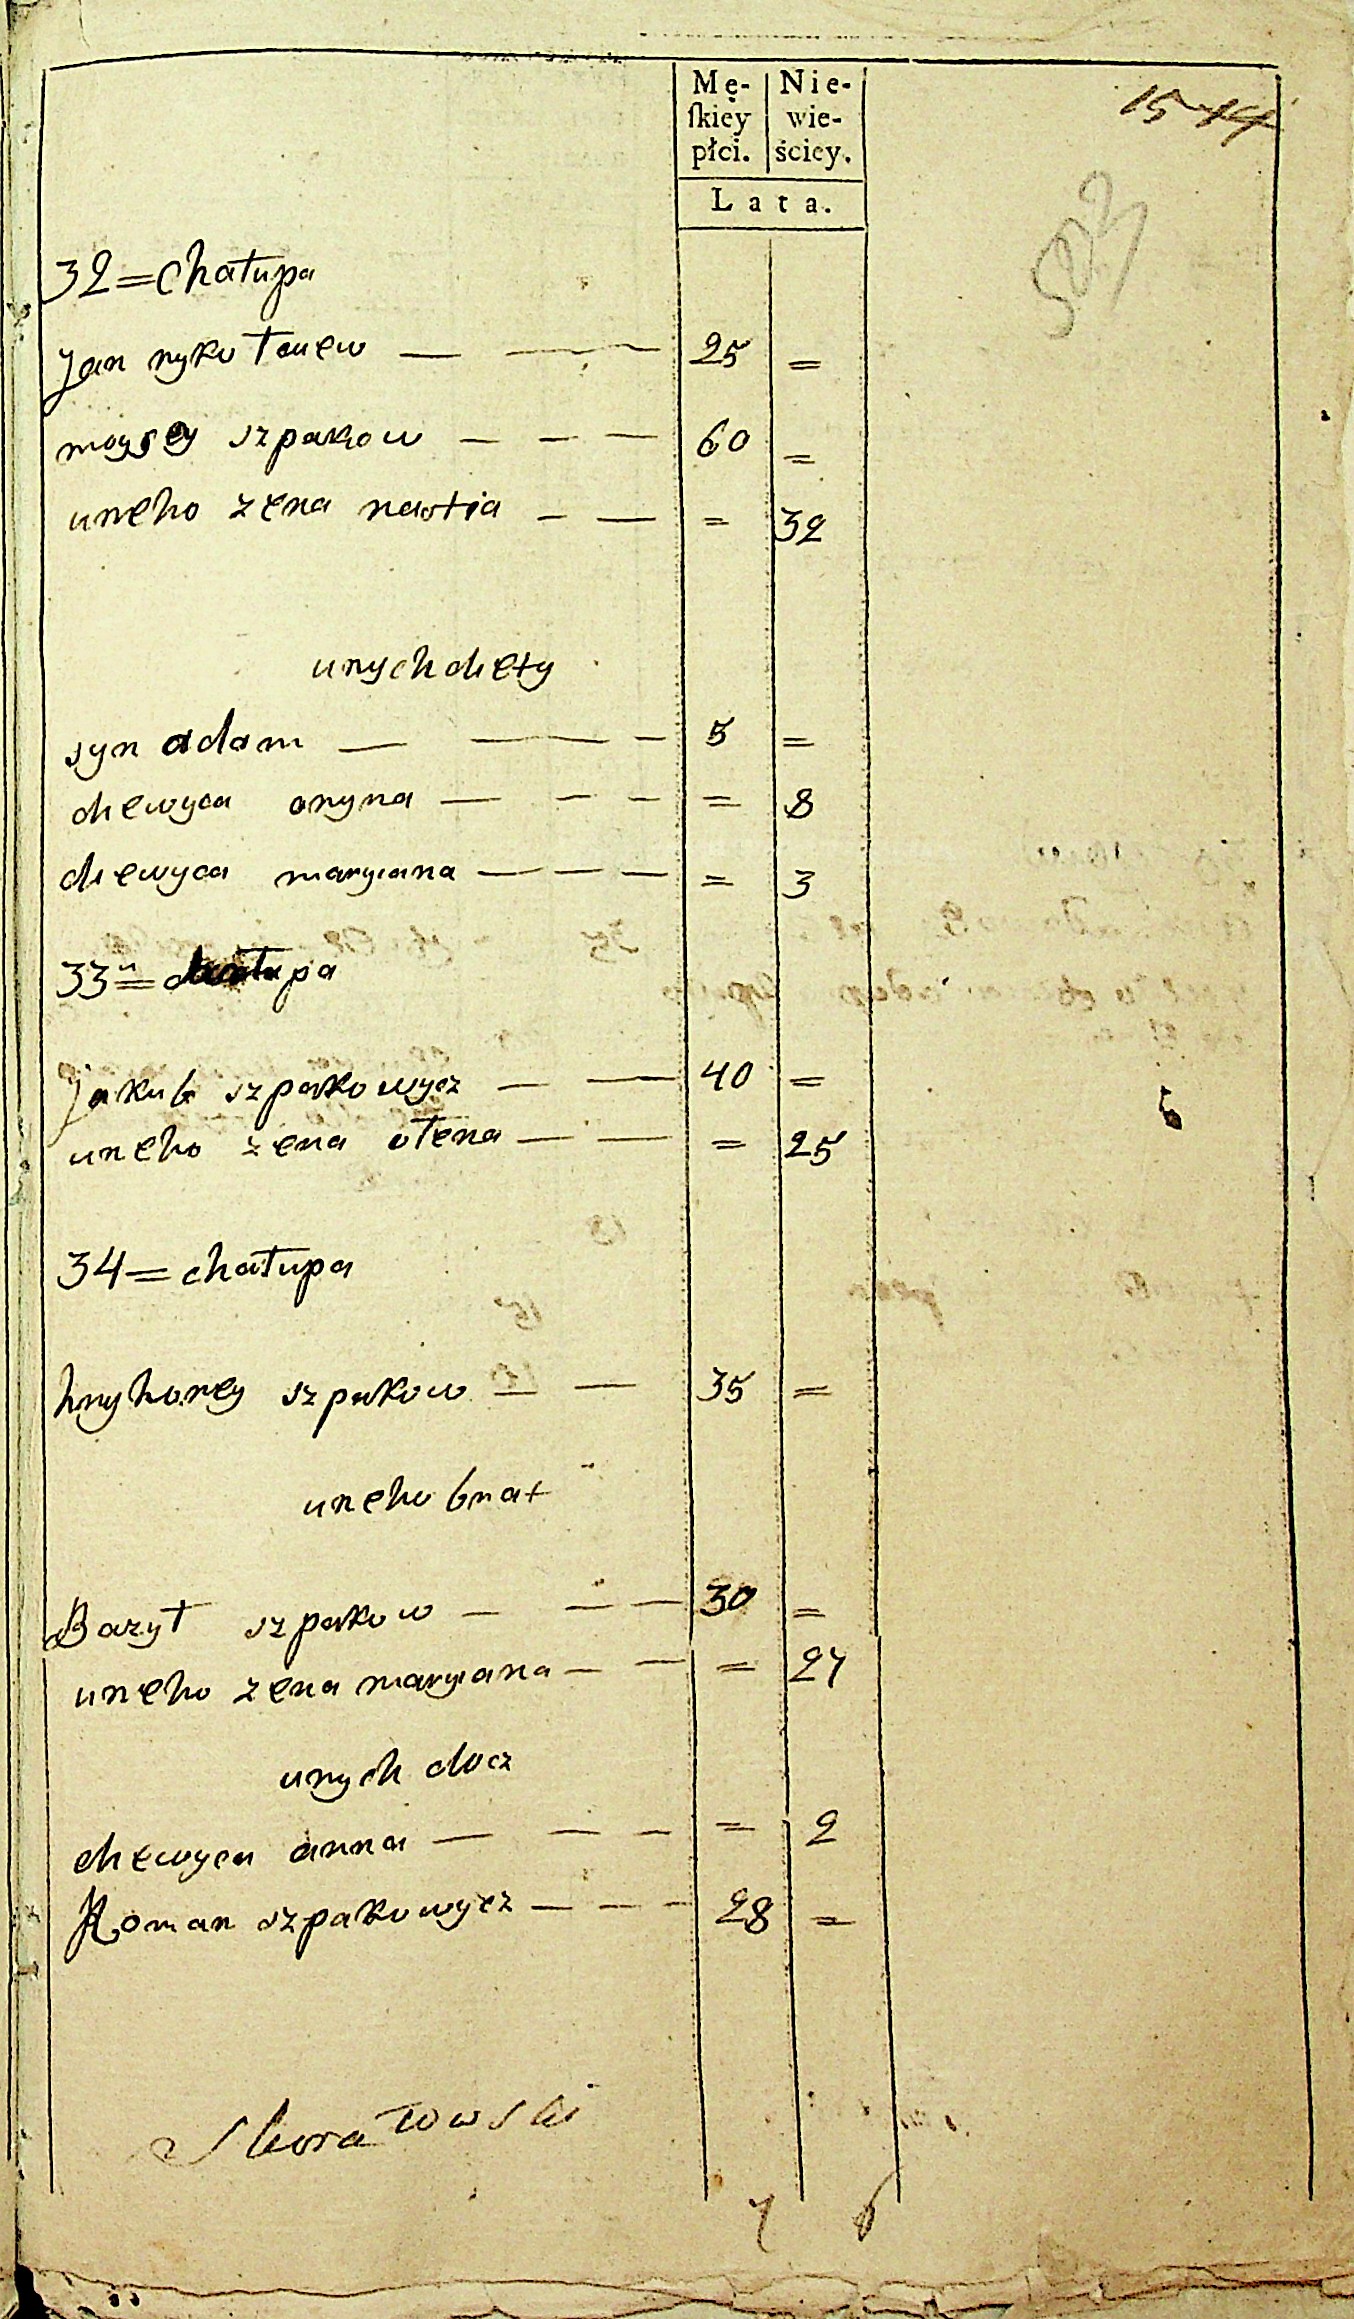 Mę- Nie-
ſkiey wie-
płci. ściey.
Lata.
32 = Chałupa
Jan nykołaiew — — 25 =
moysey szpakow — — — 60 =
uneho zena nastia — — = 32
unych diety
syn adam — — — 5 =
diewyca oryna — — — = 8
diewyca maryiana — — — = 3
33 = chałupa
Jakub szpakowycz — — 40 =
uneho zena ołena — — = 25
34 = chałupa
hryhorey szpakow — — 35 =
uneho brat
Bazył szpakow — — — 30 =
uneho zena maryiana — — = 27
unych docz
diewyca anna — — — = 2
Roman szpakowycz — — — 28 =
7 6